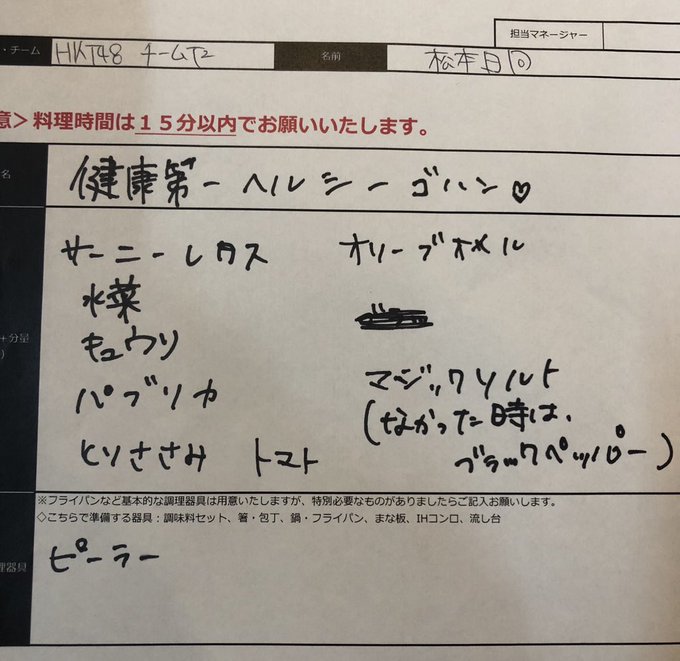 担当マネージャー
・チーム HKT48 チームTⅡ 名前 松本日向
意＞料理時間は１５分以内でお願いいたします。
名 健康第一ヘルシーゴハン♡
サーニーレタス オリーブオイル
水菜
キュウリ
＋分量
)
パプリカ マジックソルト
(なかった時は、
とりささみ トマト ブラックペッパー)
※フライパンなど基本的な調理器具は用意いたしますが、特別必要なものがありましたらご記入お願いします。
◇こちらで準備する器具：調味料セット、箸・包丁、鍋・フライパン、まな板、IHコンロ、流し台
理器具 ピーラー